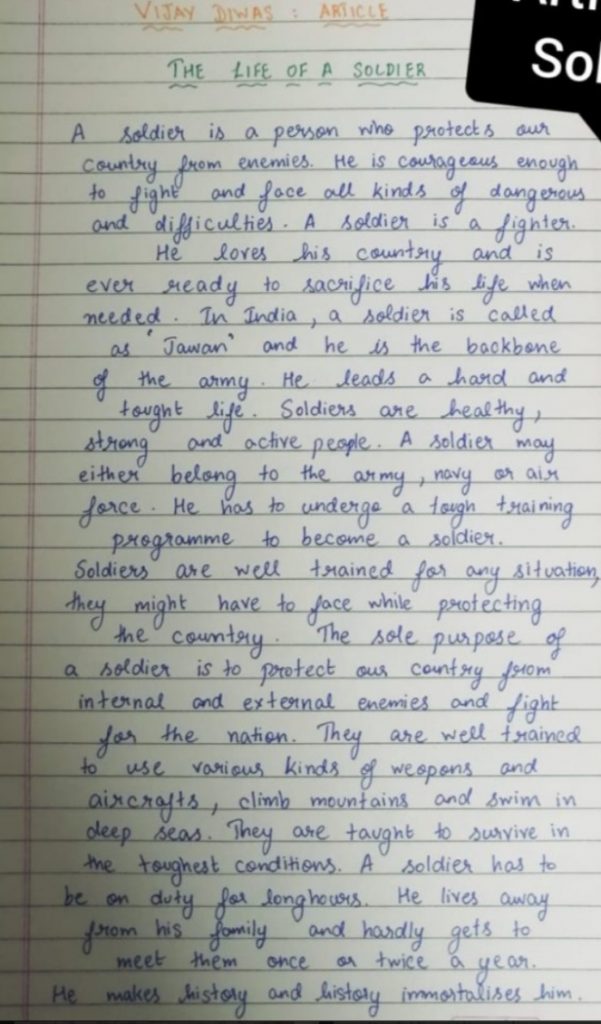 VIJAY DIWAS : ARTICLE
THE LIFE OF A SOLDIER
A soldier is a person who protects our
country from enemies. He is courageous enough
to fight and face all kinds of dangerous
and difficulties. A soldier is a fighter.
He loves his country and is
ever ready to sacrifice his life when
needed. In India, a soldier is called
as 'Jawan' and he is the backbone
of the army. He leads a hard and
tought life. Soldiers are healthy,
strong and active people. A soldier may
either belong to the army, navy or air
force. He has to undergo a tough training
programme to become a soldier.
Soldiers are well trained for any situation,
they might have to face while protecting
the country. The sole purpose of
a soldier is to protect our country from
internal and external enemies and fight
for the nation. They are well trained
to use various kinds of weapons and
aircrafts, climb mountains and swim in
deep seas. They are taught to survive in
the toughest conditions. A soldier has to
be on duty for long hours. He lives away
from his family and hardly gets to
meet them once or twice a year.
He makes history and history immortalises him.